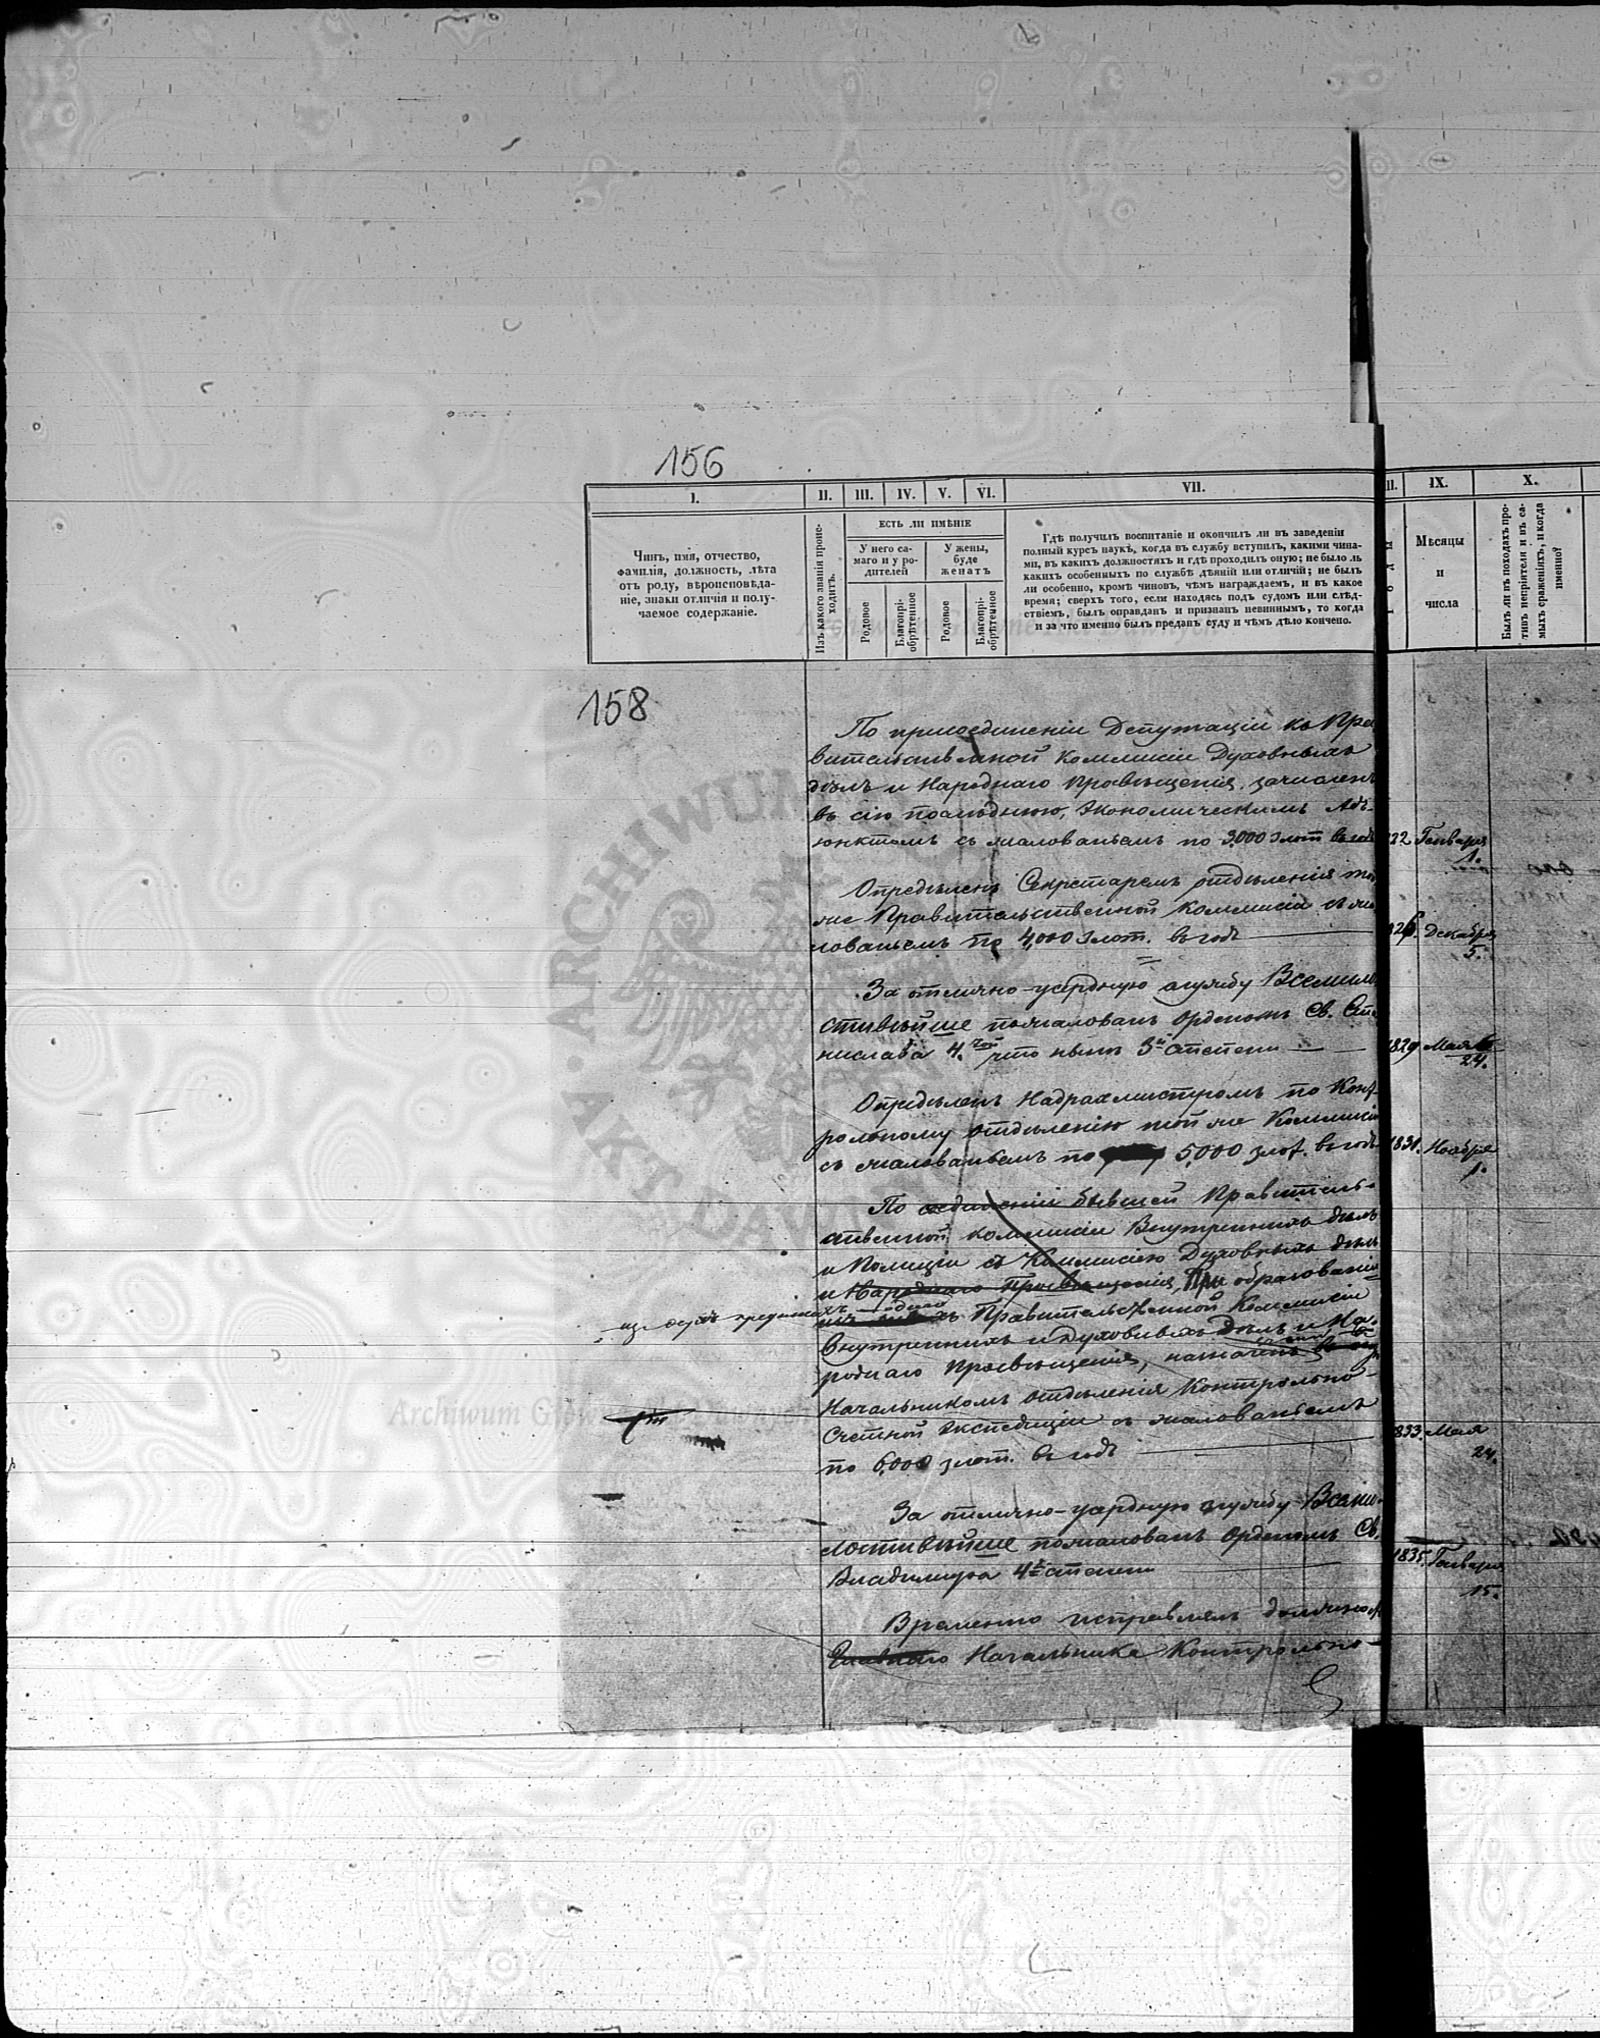 156
I.
II.
III.
IV.
V.
VI.
VII.
IX.
X.
Чинъ, имя, отчество,
фамилія, должность, лѣта
отъ роду, вѣроисповѣда-
ніе, знаки отличія и полу-
чаемое содержаніе.
Изъ какого званія проис-
ходитъ.
ЕСТЬ ЛИ ИМѢНІЕ
У него са-
маго и у ро-
дителей
У жены,
буде
женатъ
Родовое
Благопрі-
обрѣтенное
Родовое
Благопрі-
обрѣтенное
Гдѣ получилъ воспитаніе и окончилъ ли въ заведеніи
полный курсъ наукъ, когда въ службу вступилъ, какими чина-
ми, въ какихъ должностяхъ и гдѣ проходилъ оную; не было ль
какихъ особенныхъ по службѣ дѣяній или отличій; не былъ
ли особенно, кромѣ чиновъ, чѣмъ награждаемъ, и въ какое
время; сверхъ того, если находясь подъ судомъ или слѣд-
ствіемъ, былъ оправданъ и признанъ невиннымъ, то когда
и за что именно былъ преданъ суду и чѣмъ дѣло кончено.
Мѣсяцы
и
числа
Былъ ли въ походахъ про-
тивъ непріятеля и въ са-
мыхъ сраженіяхъ, и когда
именно?
158
По присоединеніи Депутаціи къ Пра
вительственной Коммисіи Духовныхъ
дѣлъ и Народнаго Просвѣщенія, зачисленъ
въ сію послѣднюю, Экономическимъ Адъ-
юнктомъ съ жалованьемъ по 3,000 злот въ годъ
22 Генваря
1.
Опредѣленъ Секретаремъ отдѣленія той
же Правительственной Коммисіи съ жа
лованьемъ по 4,000 злот. въ годъ
26. Декабря
5.
За отлично-усердную службу Всемило
стивѣйше пожалованъ Орденомъ Св. Ста
нислава 4. что нынѣ 3й степени
1829 Мая
24.
Опредѣленъ Надрахмистромъ по Конт
рольному отдѣленію той же Коммисіи
съ жалованьемъ по 5,000 злот. въ годъ
1831. Ноября
1.
По соединеніи бывшей Правитель-
ственной Коммисіи Внутреннихъ дѣлъ
и Полиціи съ Коммисіею Духовныхъ дѣлъ
и Народнаго Просвѣщенія, При образованіи
изъ двухъ прежнихъ одной Правительственной Коммисіи
Внутреннихъ и Духовныхъ Дѣлъ и На-
роднаго Просвѣщенія, назначенъ
Начальникомъ отдѣленія Контрольно-
Счетной Экспедиціи съ жалованьемъ
по 6,000 злот. въ годъ
1833. Мая
24.
За отлично-усердную службу Всеми-
лостивѣйше пожалованъ Орденомъ Св.
Владиміра 4й степени
1835. Генваря
15.
Временно исправлялъ должность
Главнаго Начальника Контрольно-
Archiwum Główne Akt Dawnych
ARCHIWUM
AKT DAWNYCH